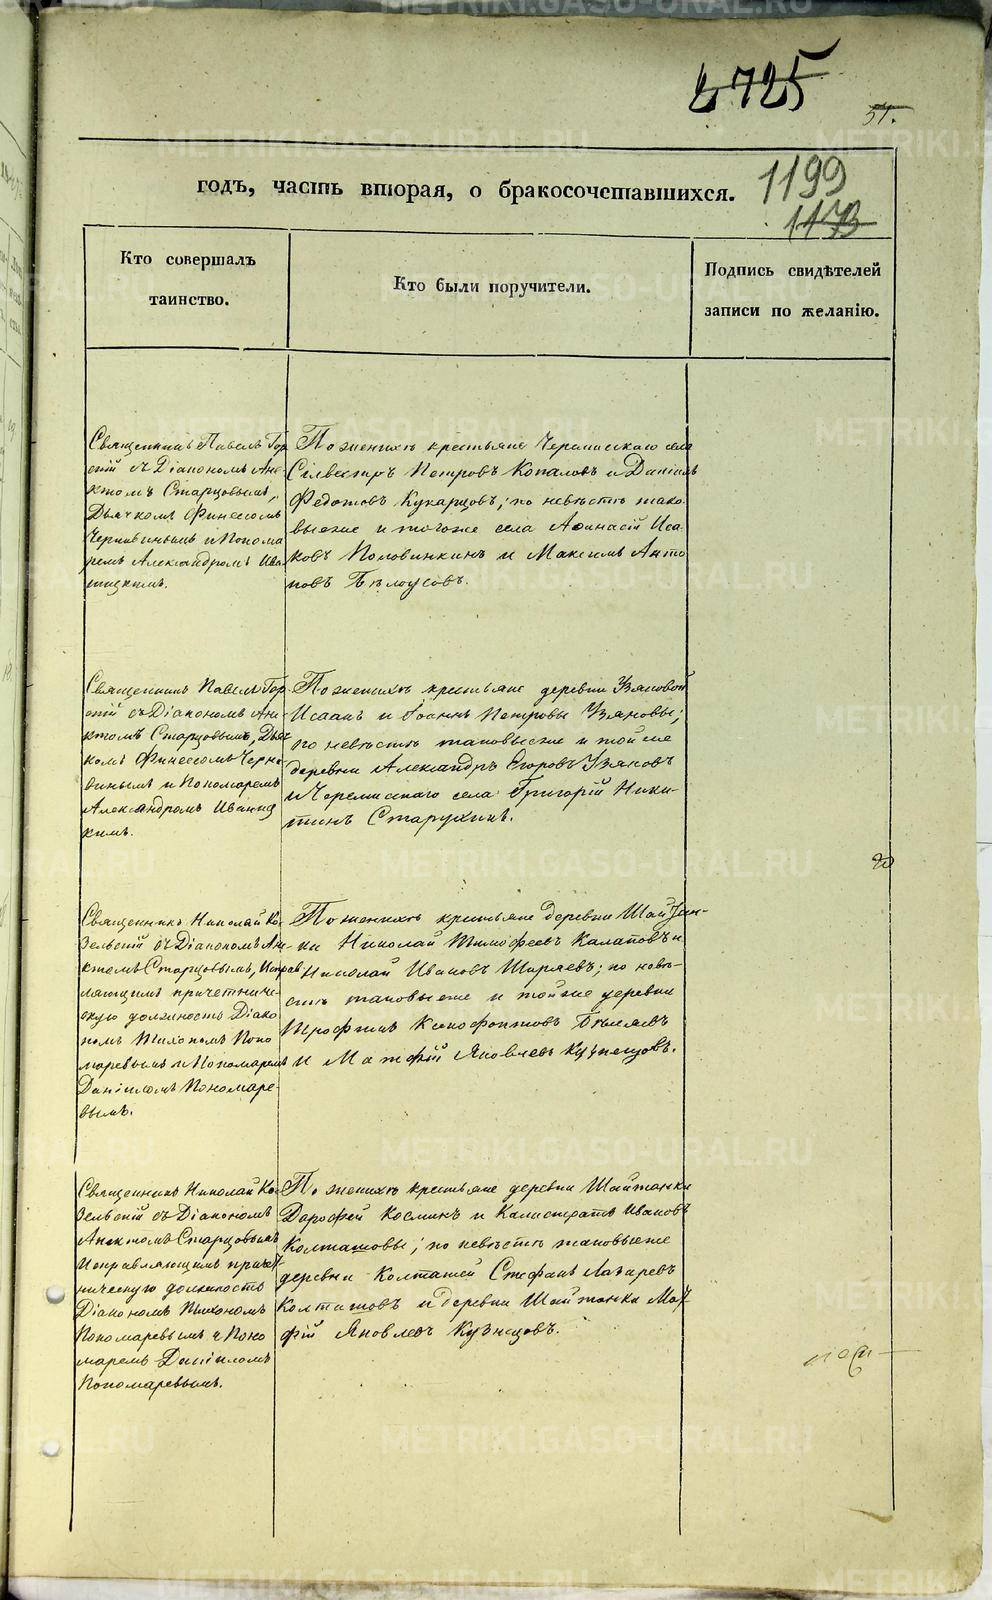 2725
51.
годъ, часть вторая, о бракосочетавшихся.
1199
1173
Кто совершалъ
таинство.
Кто были поручители.
Подпись свидѣтелей
записи по желанію.
Священникъ Павелъ Гор-
скій съ Діакономъ Ани-
ктомъ Старцовымъ,
Дьячкомъ Финеесомъ
Чернавинымъ и Понома
ремъ Александромъ Ива
ницкимъ.
По женихѣ крестьяне Черемисскаго села
Сілвестръ Петровъ Копаловъ и Даніилъ
Федотовъ Кухарцовъ; по невѣстѣ тако-
выеже и тогоже села Афанасій Иса-
ковъ Половинкинъ и Максимъ Анто
новъ Бѣлоусовъ.
Священникъ Павелъ Гор-
скій съ Діакономъ Ани-
ктомъ Старцовымъ, Дьяч
комъ Финеесомъ Черна-
винымъ и Пономаремъ
Александромъ Иваниц
кимъ.
По женихѣ крестьяне деревни Узяновой
Исаакъ и Іоаннъ Петровы Узяновы;
по невѣстѣ таковыеже и тойже
деревни Александръ Егоровъ Узяновъ
и Черемисскаго села Григорій Ники-
тинъ Старухинъ.
20
Священникъ Николай Ко-
зельскій съ Діакономъ Ани-
ктомъ Старцовымъ, Исправ
ляющимъ причетниче-
скую должность Діако-
номъ Тихономъ Поно
маревымъ и Пономаремъ
Даніиломъ Пономаре-
вымъ.
По женихѣ крестьяне деревни Шайтан-
ки Николай Тимофеевъ Калаповъ и
Николай Ивановъ Ширяевъ; по невѣ-
стѣ таковыеже и тойже деревни
Трофимъ Ксенофонтовъ Бѣляевъ
и Матфій Яковлевъ Кузнецовъ.
Священникъ Николай Ко-
зельскій съ Діакономъ
Аниктомъ Старцовымъ
Исправляющимъ причет-
ническую должность
Діакономъ Тихономъ
Пономаревымъ и Поно
маремъ Даніиломъ
Пономаревымъ.
По женихѣ крестьяне деревни Шайтанки
Дорофей Косминъ и Калистратъ Ивановъ
Колташовы; по невѣстѣ таковыеже
деревни Колташей Стефанъ Лазаревъ
Колташовъ и деревни Шайтанки Мат-
фій Яковлевъ Кузнецовъ.